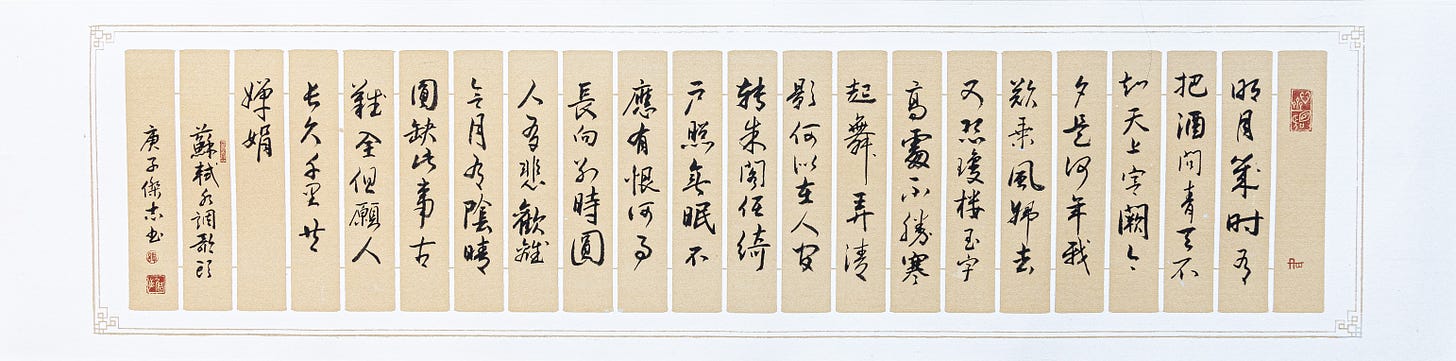 明月幾时有
把酒問青天不
知天上宫闕今
夕是何年我
欲乘風歸去
又恐瓊楼玉宇
高處不勝寒
起舞弄清
影何似在人间
转朱閣低綺
户照無眠不
應有恨何事
長向别時圓
人有悲歡離
合月有陰晴
圓缺此事古
難全但願人
长久千里共
嬋娟
蘇軾水調歌頭
庚子傑志书